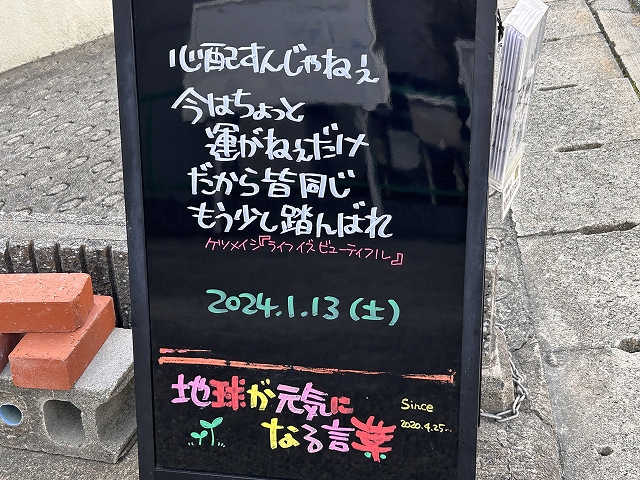 心配すんじゃねぇ
今はちょっと
運がねぇだけ
だから皆同じ
もう少し踏んばれ
ケツメイシ『ライフイズビューティフル』
2024.1.13(土)
地球が元気に
なる言葉
Since
2020.4.25~